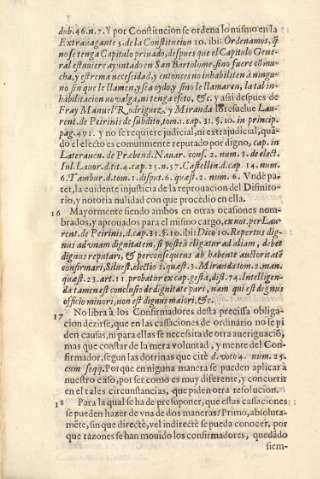 dub.46.n.7. Y por Constitucion se ordena lo mismo en la
Extravagante 3. de la Constitucion 10. ibi: Ordenamos, q̃
no se tenga Capitulo privado, despues que el Capitulo Gene-
ral estuviere ayuntado en San Bartolome, sino fuere cõmu-
cha, y estrema necessidad, y entonces no inhabiliten à ningu-
no sin que le llamen, y sea oydo, y sino le llamaren, la tal in-
habilitacion no valga, ni tenga efeto, &c. y assi despues de
Fray Manuel Rodriguez, y Miranda lo resuelve Lau-
rent. de Peirinis de subdito, tom.1. cap. 31. §. 10. in princip.
pag.491. y no se requiere judicial, ni extrajudicial, quã-
do el electo es comunmente reputado por digno, cap. in
Lateranen. de Prabend. Navar. cons. 2. num. 2. de elect.
Iul. Lavor. dit. a.cap. 23. n. 57. Castellin d. cap. 14. num.
6. Tambur. d. tom. 1. disp. 6. quæst. 2. num. 6. Vnde pa-
tet, la evidente injusticia de la reprovacion del Difinito-
rio, y notoria nulidad con que procedio en ella.
16 Mayormente siendo ambos en otras ocasiones nom-
brados, y aprovados para el mismo cargo, ex not. per Lau-
rent. de Peirinis, d. cap. 31. §. 10. ibi: Dico 10. Repertus dig-
nus ad vnam dignitatem, si posteà eligatur ad aliam, debet
dignus reputari, & per consequens ab habente auctoritatẽ
confirmari, Silvest. electio 2. quæst. 3. Miranda tom. 2. man.
quæst. 23. art. 11. probatur ex cap. gesta, dist. 74. Intelligen-
da tamen est conclusio de dignitate pari, nam qui est dignus
officio minori, non est dignus maiori. &c.
17 No libra à los Confirmadores desta precissa obliga-
cion dezirse, que en las cassaciones de ordinario no se pi
den causas, ni para ellas se necessita de otra averiguaciõ,
mas que constar de la mera voluntad, y mente del Con-
firmador, segun las dotrinas que citè d. voto 4. num. 25.
cum seqq. Porque en ninguna manera se pueden aplicar à
nuestro caso, por ser como es muy diferente, y concurrir
en el tales circunstancias, que piden otra resolucion.
18 Para la qual se ha de presuponer, que estas cassaciones
se pueden hazer de vna de dos maneras: Primo, absoluta-
mẽte, sin que directè, vel indirectè se pueda conocer, por
que razones se han movido los confirmadores, quedãdo
siem-